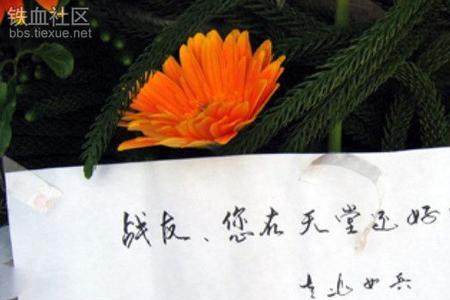 铁血社区
bbs.tiexue.net
战友、您在天堂还好
兵